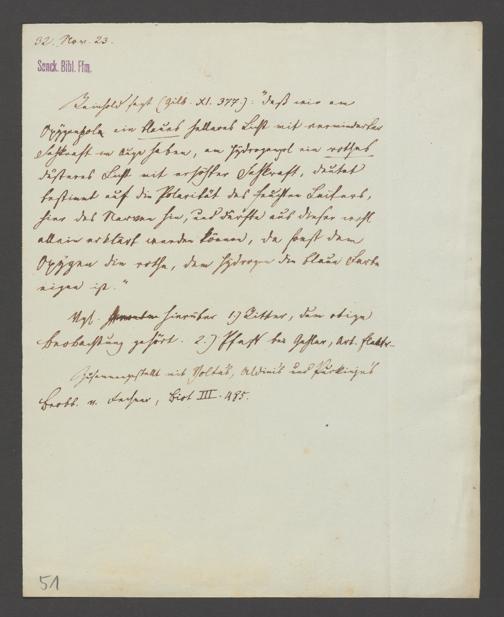 32. Nov. 23.
Senck. Bibl. Ffm.
Reinhold sagt (Gilb. XI. 377.): "daß wir am
Oxygenpole ein blaues helleres Licht mit verminderter
Sehkraft im Auge haben, am Hydrogenpol ein rothes
düsteres Licht mit erhöhter Sehkraft, deutet
bestimmt auf die Polarität des feuchten Leiters,
hier des Nerven hin, und dürfte aus dieser wohl
allein erklärt werden können, da sonst dem
Oxygen die rothe, dem Hydrogen die blaue Farbe
eigen ist."
Vgl. hierüber 1.) Ritter, dem obige
Beobachtung gehört. 2.) Pfaff bei Gehler, Art. Elektr.
Zusammengestellt mit Volta's, Aldini's und Purkinje's
Beobb. v. Fechner, Biot III. 495.
51